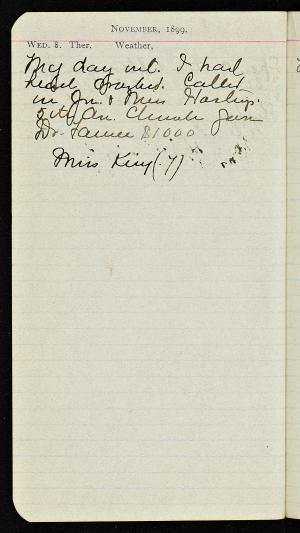 NOVEMBER, 1899.
WED. 8. Ther. Weather,
My day out. I had
called
in Jn. & Miss Hastings.
5th Av. Church gave
Dr. $1000
Miss King (.7)